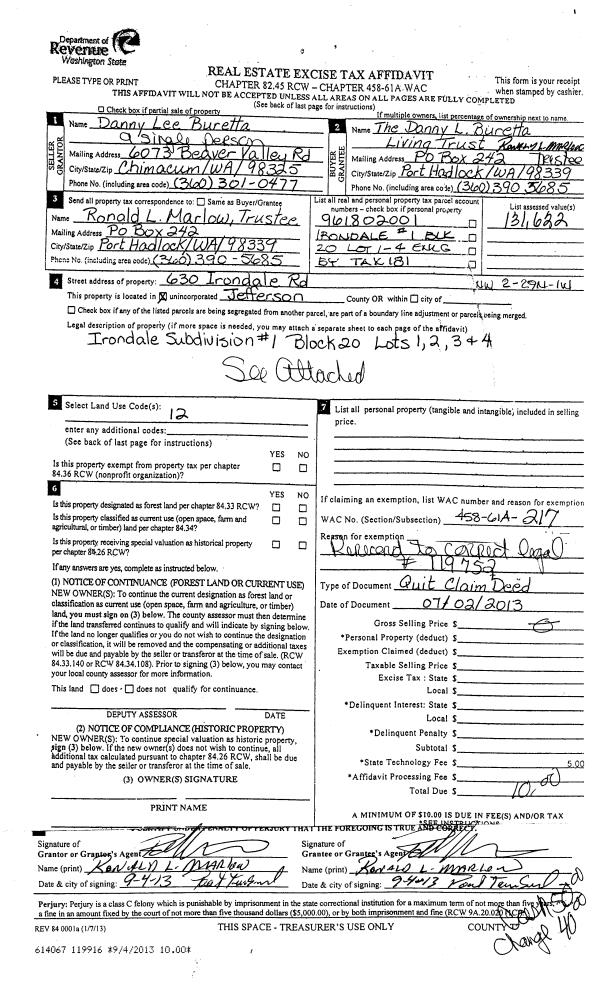 Department of
Revenue
Washington State
REAL ESTATE EXCISE TAX AFFIDAVIT
PLEASE TYPE OR PRINT
CHAPTER 82.45 RCW – CHAPTER 458-61A WAC
This form is your receipt
when stamped by cashier.
THIS AFFIDAVIT WILL NOT BE ACCEPTED UNLESS ALL AREAS ON ALL PAGES ARE FULLY COMPLETED
(See back of last page for instructions)
☐ Check box if partial sale of property
If multiple owners, list percentage of ownership next to name.
1 Name Danny Lee Buretta
a single person
SELLER GRANTOR
Mailing Address 6073 Beaver Valley Rd
City/State/Zip Chimacum/WA/98325
Phone No. (including area code) (360) 301-0477
2 Name The Danny L. Buretta
Living Trust Ronald L Marlow
BUYER GRANTEE
Mailing Address PO Box 242 Trustee
City/State/Zip Port Hadlock/WA/98339
Phone No. (including area code) (360) 390 5685
3 Send all property tax correspondence to: ☐ Same as Buyer/Grantee
Name Ronald L. Marlow, Trustee
Mailing Address PO Box 242
City/State/Zip Port Hadlock/WA/98339
Phone No. (including area code) (360) 390-5685
List all real and personal property tax parcel account
numbers – check box if personal property
961802001
IRONDALE #1 BLK
20 LOT 1-4 ENLG
BY TAX 181
List assessed value(s)
131,622
4 Street address of property: 630 Irondale Rd
NW 2-29N-1W
This property is located in ☒ unincorporated Jefferson County OR within ☐ city of
☐ Check box if any of the listed parcels are being segregated from another parcel, are part of a boundary line adjustment or parcels being merged.
Legal description of property (if more space is needed, you may attach a separate sheet to each page of the affidavit)
Irondale Subdivision #1 Block 20 Lots 1, 2, 3 & 4
See Attached
5 Select Land Use Code(s):
12
enter any additional codes:
(See back of last page for instructions)
YES NO
Is this property exempt from property tax per chapter
84.36 RCW (nonprofit organization)? ☐ ☐
6
YES NO
Is this property designated as forest land per chapter 84.33 RCW? ☐ ☐
Is this property classified as current use (open space, farm and
agricultural, or timber) land per chapter 84.34? ☐ ☐
Is this property receiving special valuation as historical property
per chapter 84.26 RCW? ☐ ☐
If any answers are yes, complete as instructed below.
(1) NOTICE OF CONTINUANCE (FOREST LAND OR CURRENT USE)
NEW OWNER(S): To continue the current designation as forest land or
classification as current use (open space, farm and agriculture, or timber)
land, you must sign on (3) below. The county assessor must then determine
if the land transferred continues to qualify and will indicate by signing below.
If the land no longer qualifies or you do not wish to continue the designation
or classification, it will be removed and the compensating or additional taxes
will be due and payable by the seller or transferor at the time of sale. (RCW
84.33.140 or RCW 84.34.108). Prior to signing (3) below, you may contact
your local county assessor for more information.
This land ☐ does ☐ does not qualify for continuance.
DEPUTY ASSESSOR DATE
(2) NOTICE OF COMPLIANCE (HISTORIC PROPERTY)
NEW OWNER(S): To continue special valuation as historic property,
sign (3) below. If the new owner(s) does not wish to continue, all
additional tax calculated pursuant to chapter 84.26 RCW, shall be due
and payable by the seller or transferor at the time of sale.
(3) OWNER(S) SIGNATURE
PRINT NAME
7 List all personal property (tangible and intangible) included in selling
price.
If claiming an exemption, list WAC number and reason for exemption:
WAC No. (Section/Subsection) 458-61A-217
Reason for exemption
Rerecord to correct legal
# 119752
Type of Document Quit Claim Deed
Date of Document 07/02/2013
Gross Selling Price $
*Personal Property (deduct) $
Exemption Claimed (deduct) $
Taxable Selling Price $
Excise Tax : State $
Local $
*Delinquent Interest: State $
Local $
*Delinquent Penalty $
Subtotal $
*State Technology Fee $ 5.00
*Affidavit Processing Fee $
Total Due $ 10.00
A MINIMUM OF $10.00 IS DUE IN FEE(S) AND/OR TAX
*SEE INSTRUCTIONS
PENALTY OF PERJURY THAT THE FOREGOING IS TRUE AND CORRECT.
Signature of
Grantor or Grantor's Agent
Name (print) RONALD L. MARLOW
Date & city of signing: 9-4-13 Port Townsend
Signature of
Grantee or Grantee's Agent
Name (print) RONALD L. MARLOW
Date & city of signing: 9-4-13 Port Townsend
Perjury: Perjury is a class C felony which is punishable by imprisonment in the state correctional institution for a maximum term of not more than five years, or by
a fine in an amount fixed by the court of not more than five thousand dollars ($5,000.00), or by both imprisonment and fine (RCW 9A.20.020
REV 84 0001a (1/7/13)
THIS SPACE - TREASURER'S USE ONLY
COUNTY
Change 40
614067 119916 *9/4/2013 10.00*